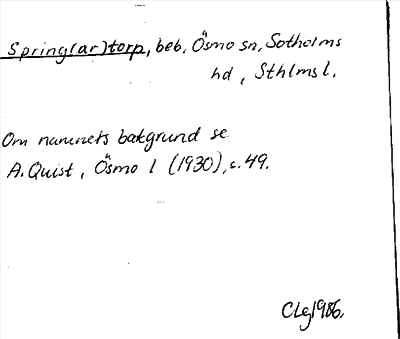 Spring(ar)torp, beb. Ösmo sn, Sotholms
hd, Sthlms l.
Om namnets bakgrund se
A. Quist, Ösmo 1 (1930), s. 49.
CLg 1986.